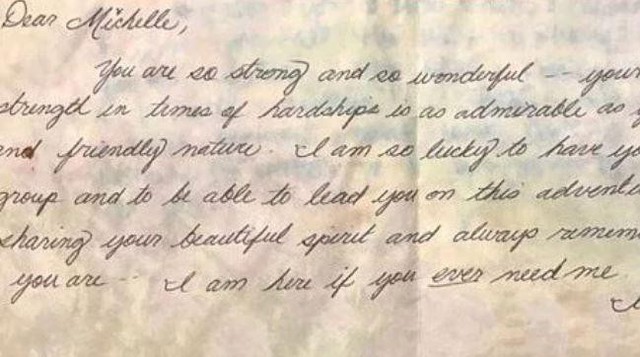 Dear Michelle,
You are so strong and so wonderful -- your
strength in times of hardships is as admirable as
and friendly nature. I am so lucky to have yo
group and to be able to lead you on this advent
sharing your beautiful spirit and always remem
you are -- I am here if you ever need me